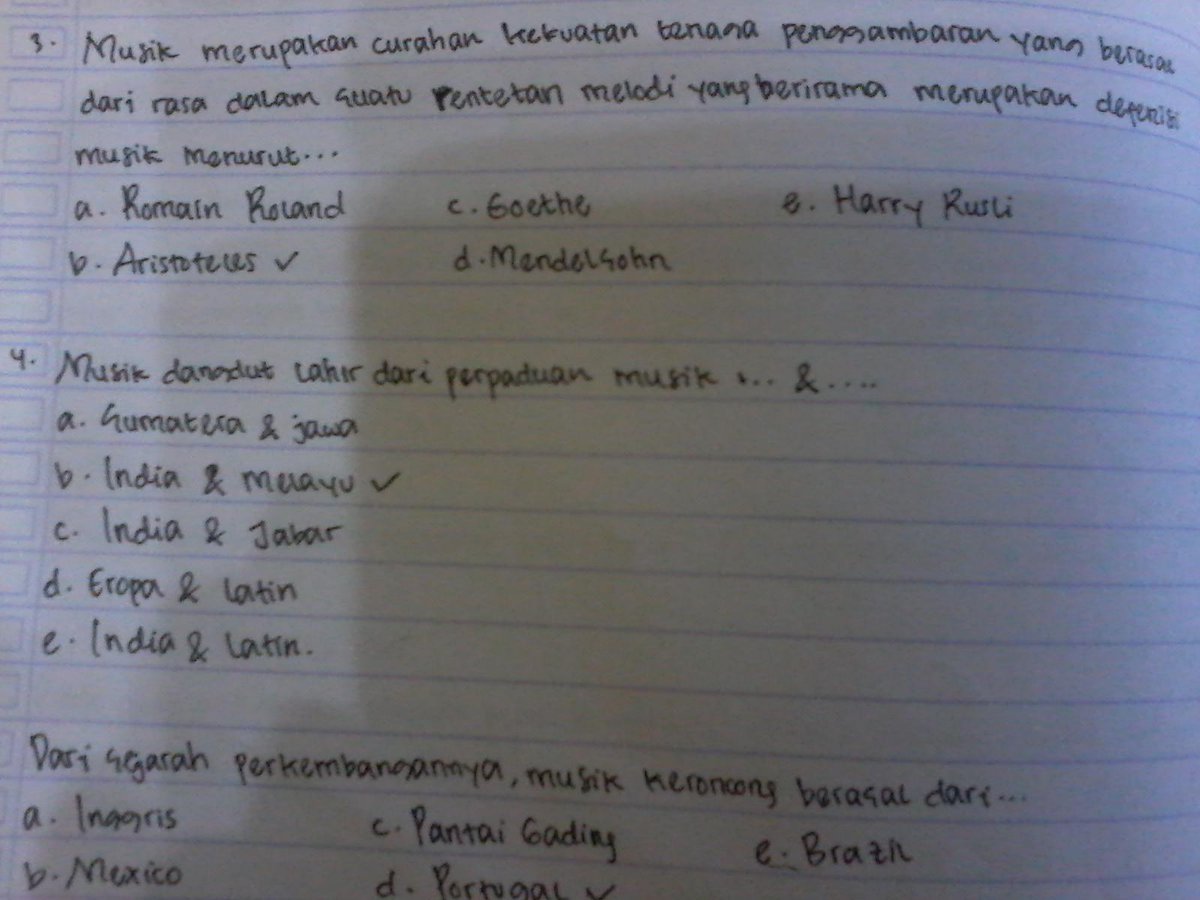 3. Musik merupakan curahan kekuatan tenaga penggambaran yang berasal
dari rasa dalam suatu rentetan melodi yang berirama merupakan defenisi
musik menurut...
a. Romain Roland c. Goethe e. Harry Rusli
b. Aristoteles ✓ d. Mendelsohn
4. Musik dangdut lahir dari perpaduan musik .... & ....
a. Sumatera & jawa
b. India & melayu ✓
c. India & Jabar
d. Eropa & latin
e. India & latin.
Dari sejarah perkembangannya, musik keroncong berasal dari...
a. Inggris c. Pantai Gading e. Brazil
b. Mexico d. Portugal ✓